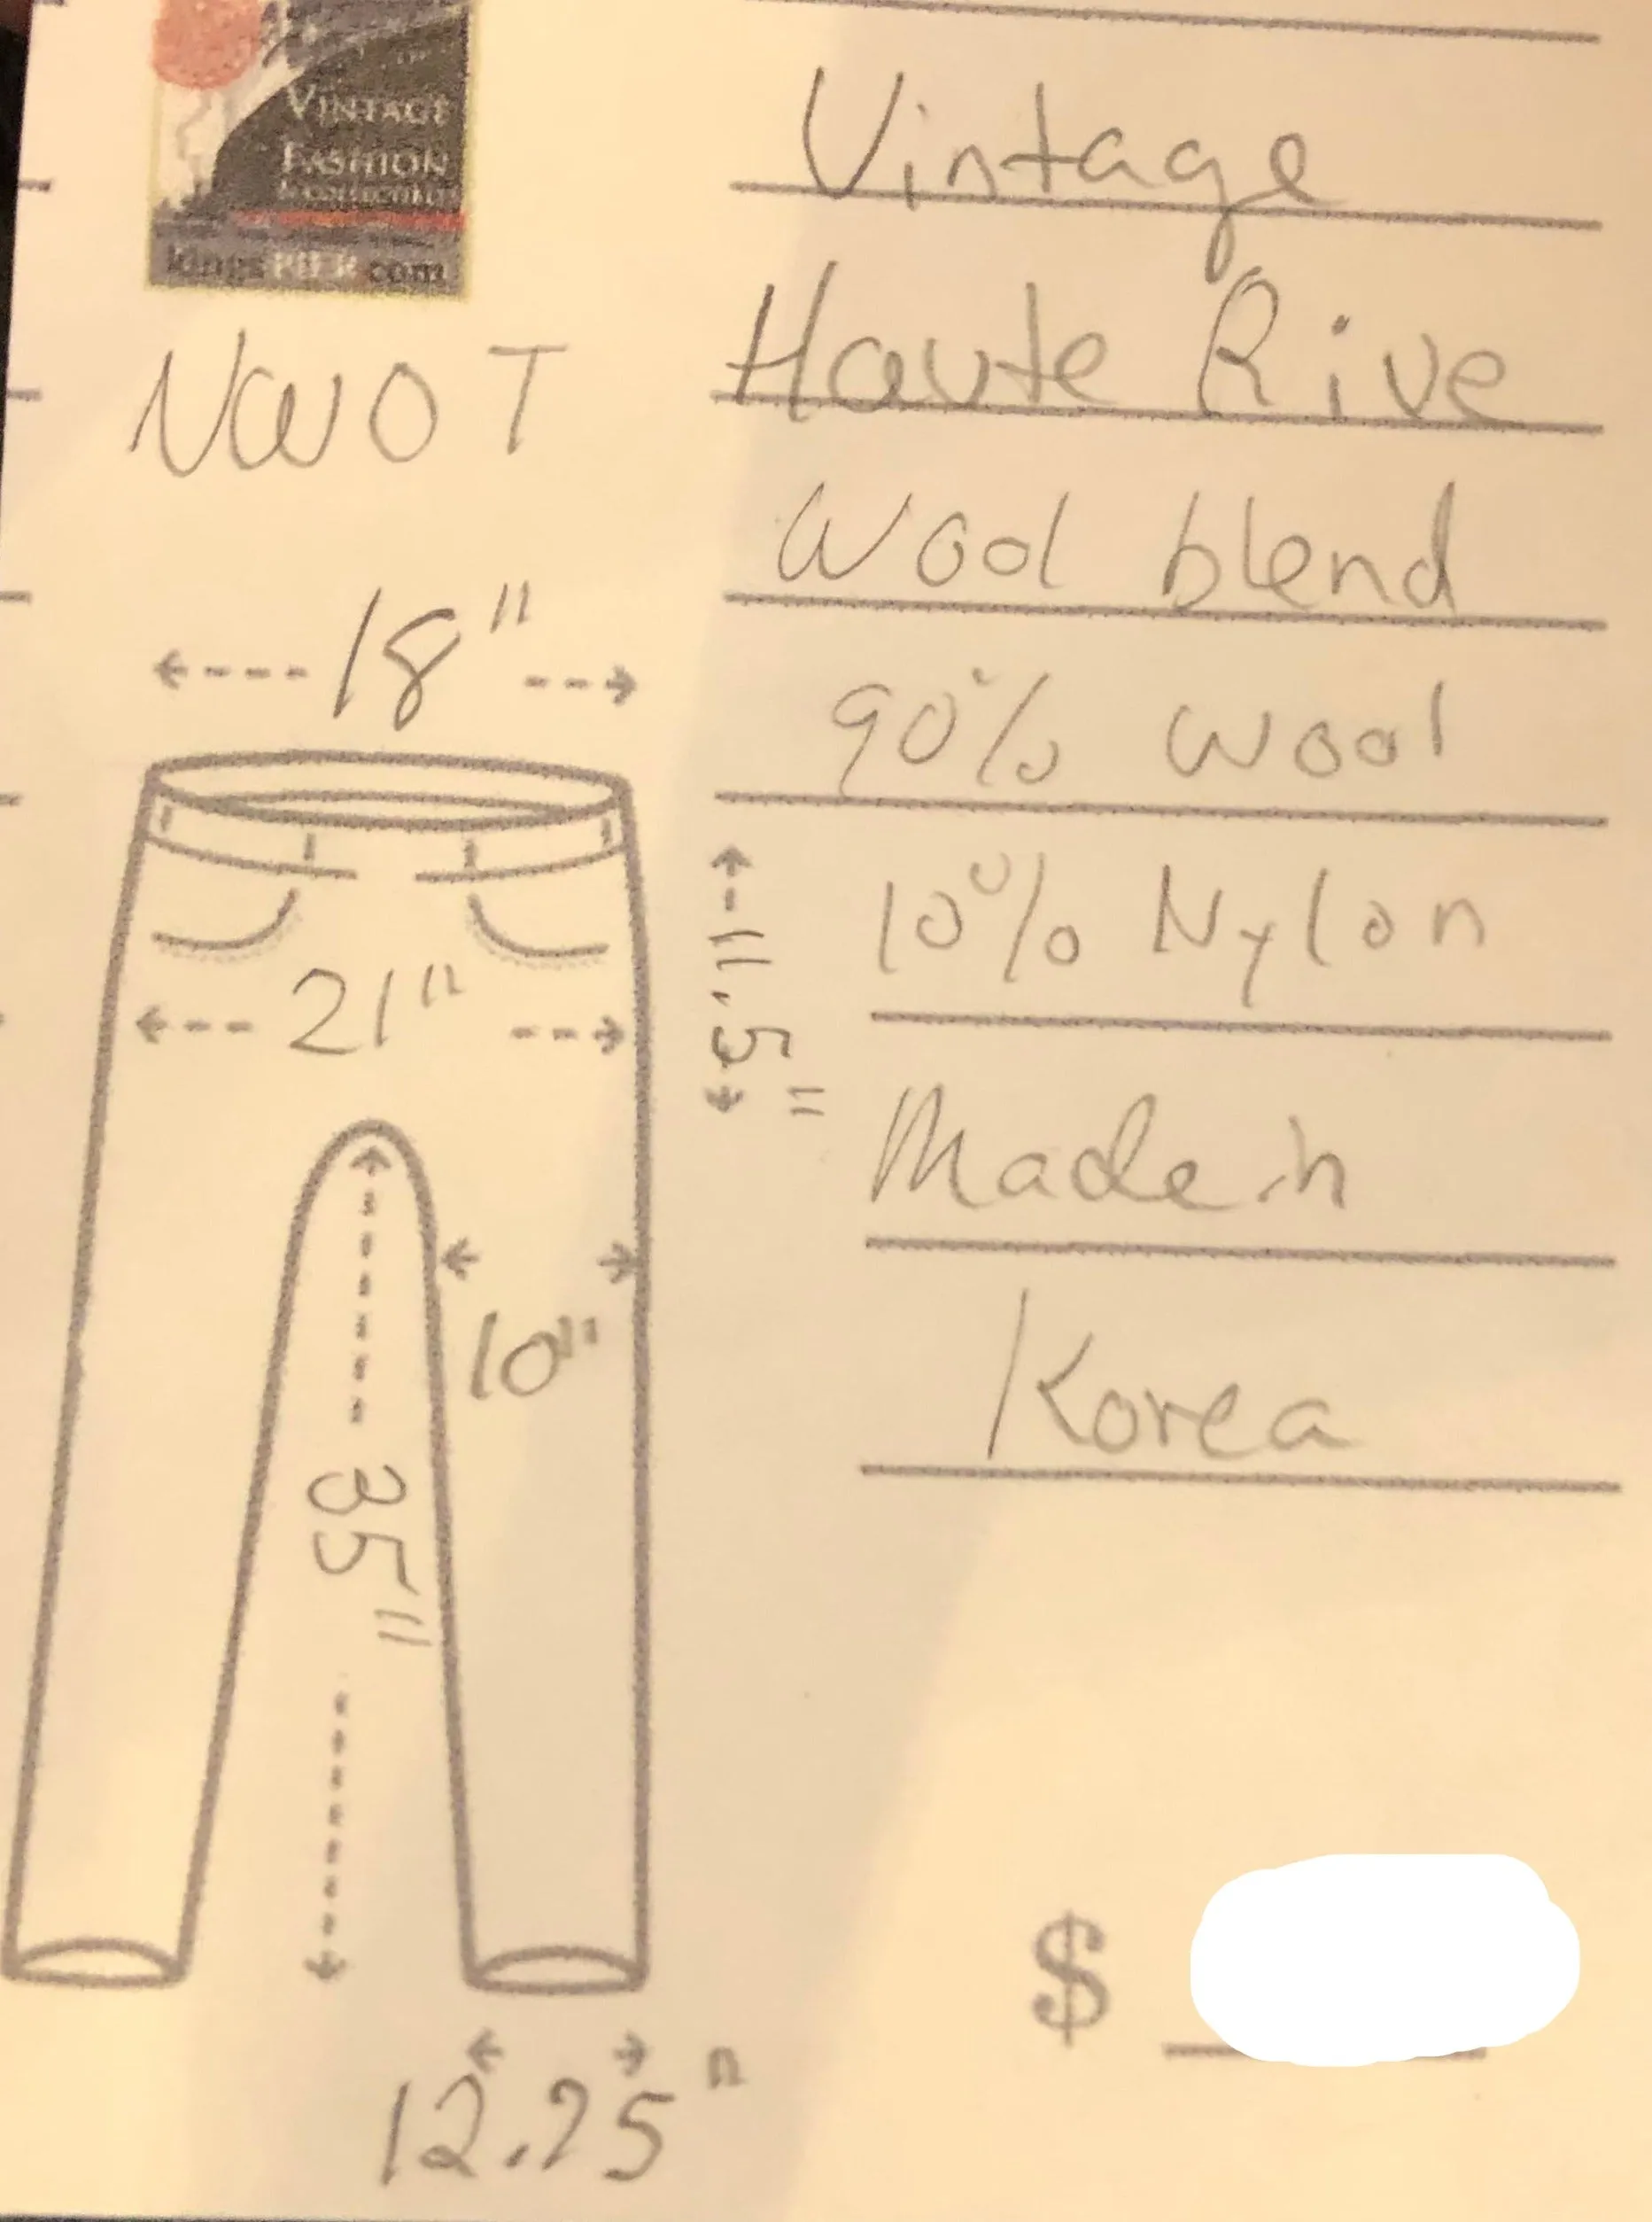 VINTAGE
FASHION
& COLLECTIBLES
kingsPIER.com
NWOT
Vintage
Haute Rive
Wool blend
90% Wool
10% Nylon
Made in
Korea
18"
21"
11.5"
10"
35"
12.25"
$